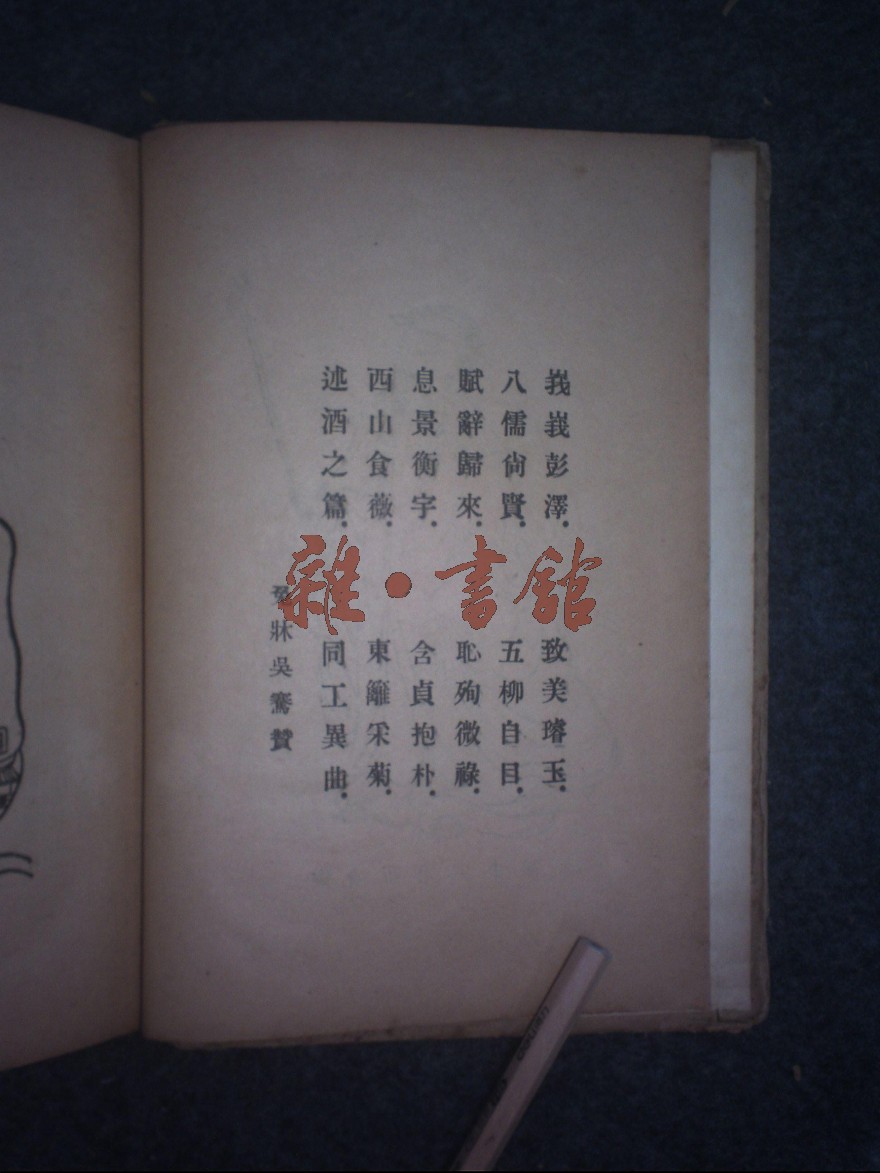 峩峩彭澤．致美璿玉．
八儒尙賢．五柳自目．
賦辭歸來．恥殉微祿．
息景衡宇．含貞抱朴．
西山食薇．東籬采菊．
述酒之篇．同工異曲．
牀吳騫贊
雜·書舘